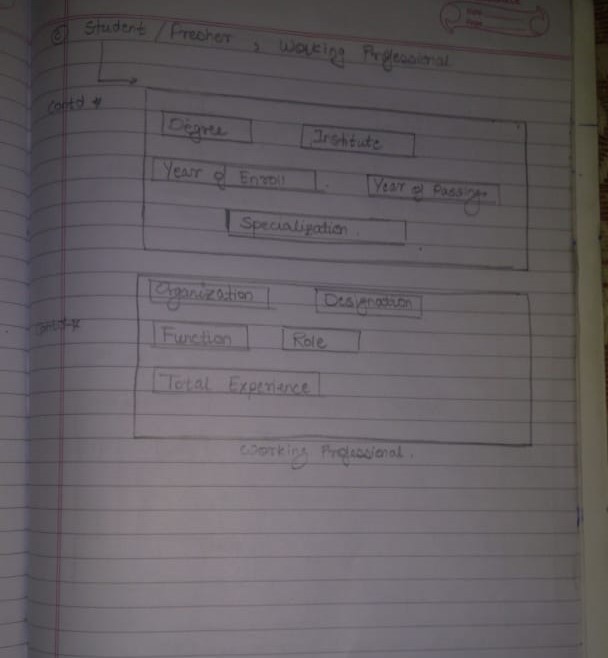 Student / Fresher , Working Professional
Contd
Degree Institute
Year of Enroll Year of Passing
Specialization
Organization Designation
Function Role
Total Experience
Working Professional.